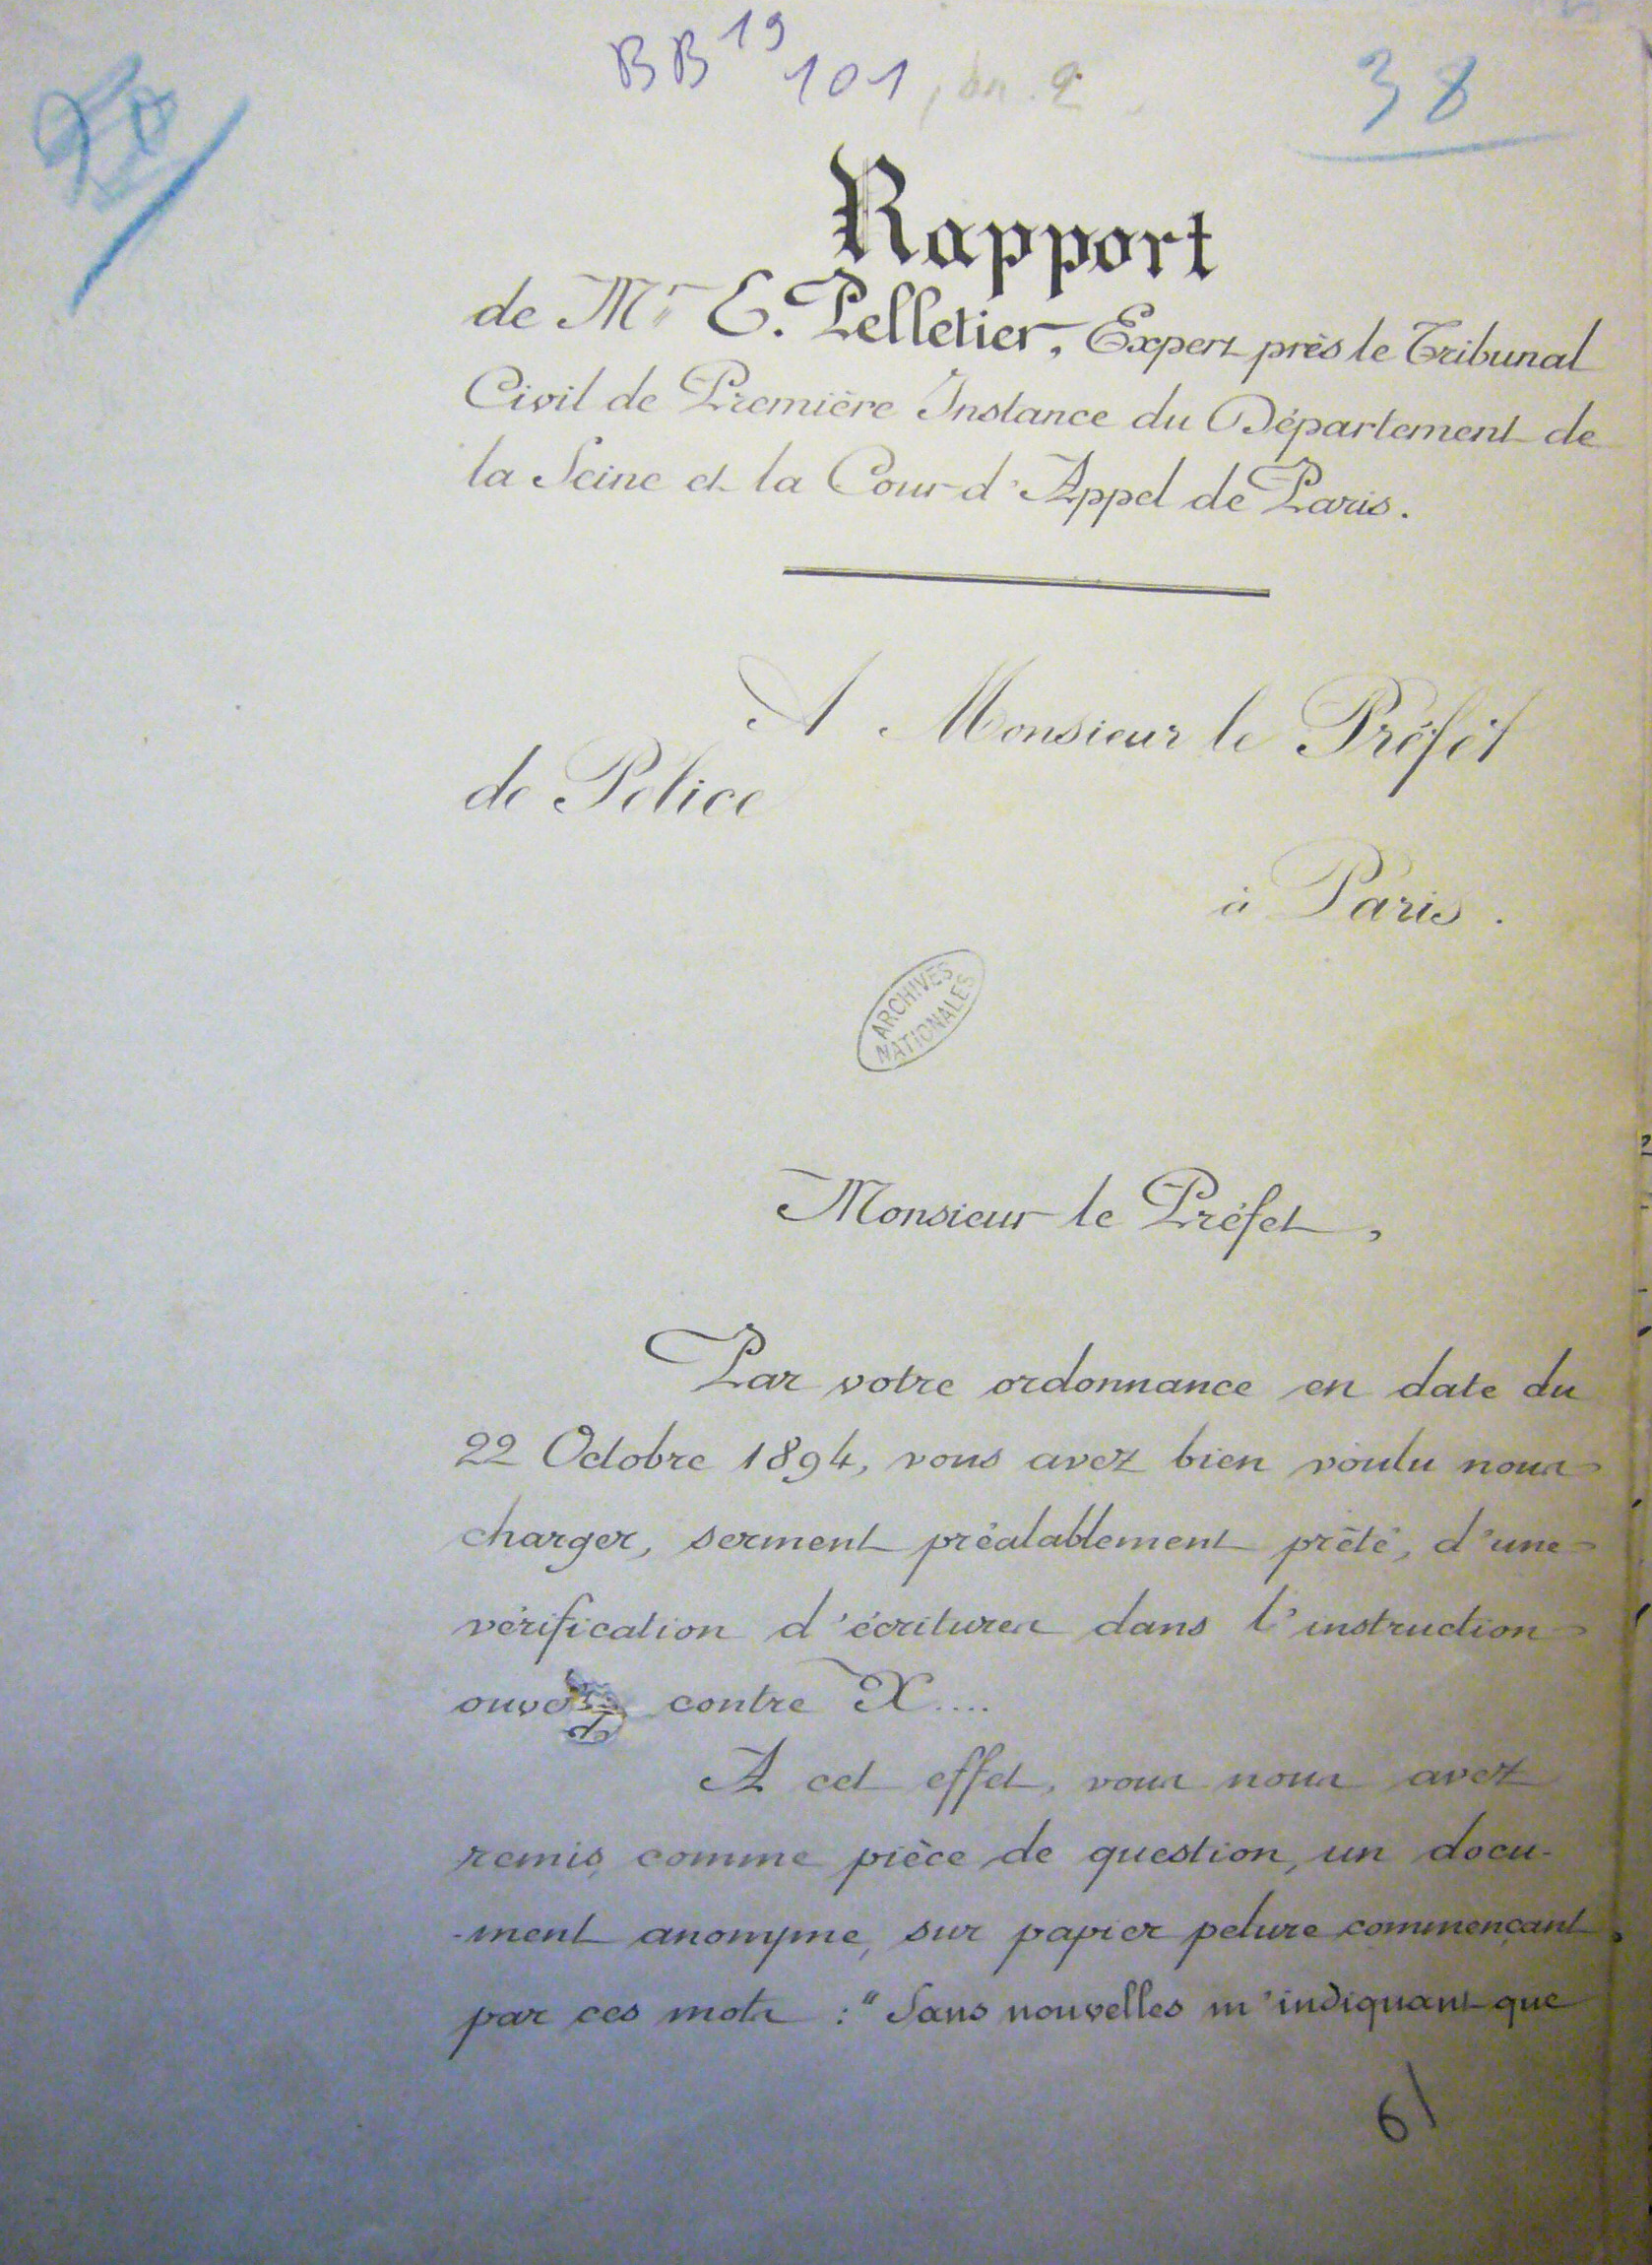 BB 19 101
38
Rapport
de Mr E. Pelletier, Expert près le Tribunal
Civil de Première Instance du Département de
la Seine et la Cour d'Appel de Paris.
A Monsieur le Préfèt
de Police
à Paris.
ARCHIVES
NATIONALES
Monsieur le Préfet,
Par votre ordonnance en date du
22 Octobre 1894, vous avez bien voulu nous
charger, serment préalablement prêté, d'une
vérification d'écritures dans l'instruction
contre X....
A cet effet, vous nous avez
remis comme pièce de question, un docu-
-ment anonyme, sur papier pelure commençant
par ces mots : "Sans nouvelles m'indiquant que